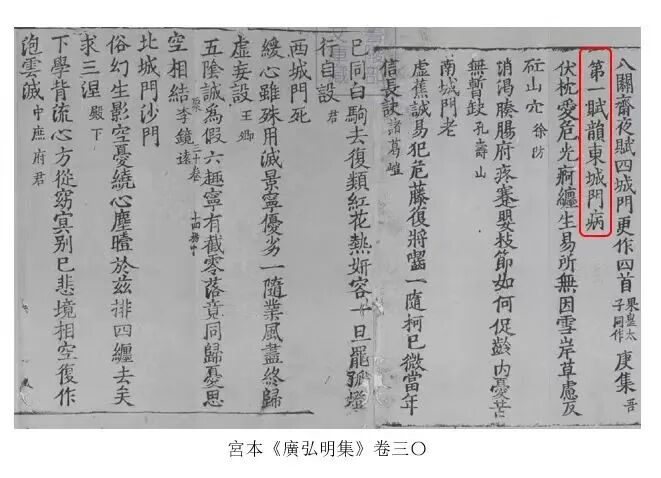 八關齋夜賦四城門更作四首 梁皇太子同作 庾集吾
第一賦韻東城門病
伏枕愛危光痾纏生易所無因雪岸草慮反
砡山穴 徐防
消渴腠腸府疼蹇嬰枝節如何促齡內憂苦
無暫缺 孔壽山
南城門老
虛蕉誠易犯危藤復將囓一隨柯巳微當年
信長訣 諸葛嵦
巳同白駒去復類紅花熱妍容一旦罷孤燈
行自設 君
西城門死
緩心雖殊用滅景寧優劣一隨業風盡終歸
虛妄設 王卿
五陰誠為假六趣寧有截零落竟同歸憂思
空相結 李鏡遠
北城門沙門
俗幻生影空憂繞心塵曀於茲排四纏去矣
求三涅 殿下
下學背流心方從窈冥別巳悲境相空復作
泡雲滅 中庶府君
宮本《廣弘明集》卷三〇